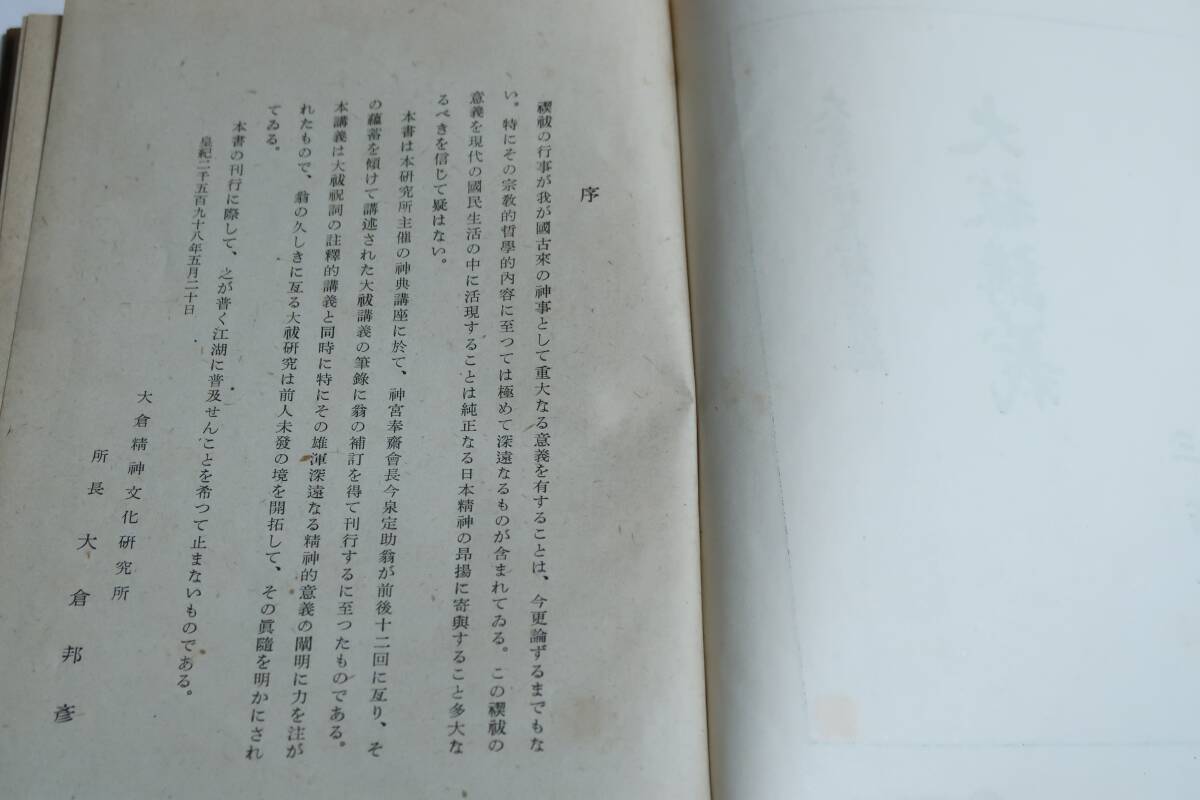 序
禊祓の行事が我が國古來の神事として重大なる意義を有することは、今更論ずるまでもな
い。特にその宗教的哲學的內容に至つては極めて深遠なるものが含まれてゐる。この禊祓の
意義を現代の國民生活の中に活現することは純正なる日本精神の昂揚に寄與すること多大な
るべきを信じて疑はない。
本書は本研究所主催の神典講座に於て、神宮奉齋會長今泉定助翁が前後十二回に亙り、そ
の蘊蓄を傾けて講述された大祓講義の筆錄に翁の補訂を得て刊行するに至つたものである。
本講義は大祓祝詞の註釋的講義と同時に特にその雄渾深遠なる精神的意義の闡明に力を注が
れたもので、翁の久しきに亙る大祓研究は前人未發の境を開拓して、その眞隨を明かにされ
てゐる。
本書の刊行に際して、之が普く江湖に普及せんことを希つて止まないものである。
皇紀二千五百九十八年五月二十日
大倉精神文化研究所
所長 大倉邦彥